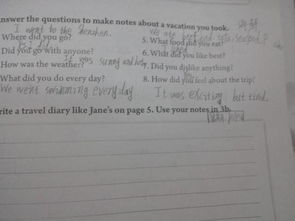 nswer the questions to make notes about a vacation you took.
I went to the beachen. We ate beef and
Where did you go? 5. What food did you eat?
Did you go with anyone? 6. What did you like best?
It was sunny and hot
How was the weather? 7. Did you dislike anything?
What did you do every day? 8. How did you feel about the trip?
We went swimming every day It was exciting but tired.
rite a travel diary like Jane's on page 5. Use your notes in 3b.